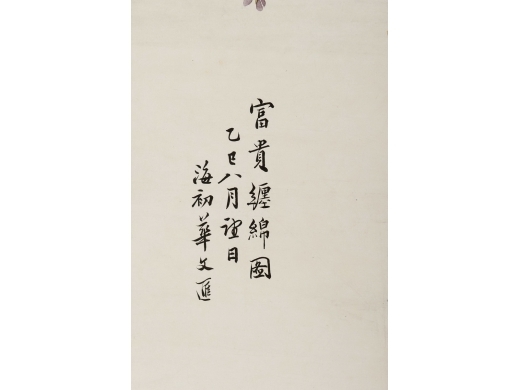 富貴纏綿圖
乙巳八月望日
海初華文匯